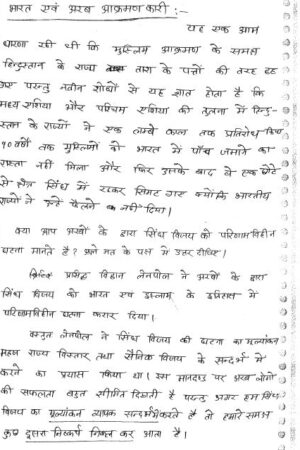 भारत एवं अरब आक्रमणकारी :-
यह एक आम
धारणा रही थी कि मुस्लिम आक्रमण के समक्ष
हिन्दुस्तान के राज्य ताश के पत्तों की तरह ढह
गए परन्तु नवीन शोधों से यह ज्ञात होता है कि
मध्य एशिया और पश्चिम एशिया की तुलना में हिन्दु-
स्तान के राज्यों ने एक लम्बे काल तक प्रतिरोध किया
90 वर्षों तक मुस्लिमों को भारत में पाँव जमाने का
रास्ता नहीं मिला और फिर उसके बाद वे एक छोटे
से क्षेत्र सिंध में रहकर सिमट गए क्योंकि भारतीय
राज्यों ने उन्हें फैलने नहीं दिया।
क्या आप अरबों के द्वारा सिंध विजय को परिणामविहीन
घटना मानते हैं? अपने मत के पक्ष में उत्तर दीजिए।
प्रसिद्ध विद्वान लेनपोल ने अरबों के द्वारा
सिंध विजय को भारत एवं इस्लाम के इतिहास में
परिणामविहीन घटना करार दिया।
वस्तुतः लेनपोल ने सिंध विजय की घटना का मूल्यांकन
महज राज्य विस्तार तथा सैनिक विजय के सन्दर्भ में
करने का प्रयास किया था। इस मानदण्ड पर अरब लोगों
की सफलता बहुत सीमित दिखती है परन्तु अगर हम सिंध
विजय का मूल्यांकन व्यापक सन्दर्भ में करते हैं तो हमारे समक्ष
कुछ दूसरा निष्कर्ष निकल कर आता है।